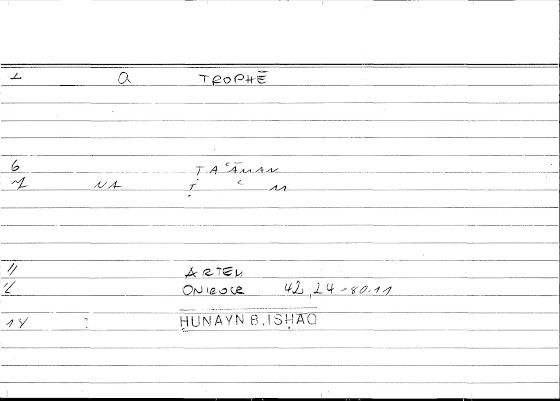 1 a TROPHĒ
6 ṬAʿĀMAN
7 NA Ṭ ʿ M
11 ARTEM
12 ONIROCR 42,24-80.11
14 : ḤUNAYN B. ISḤĀQ